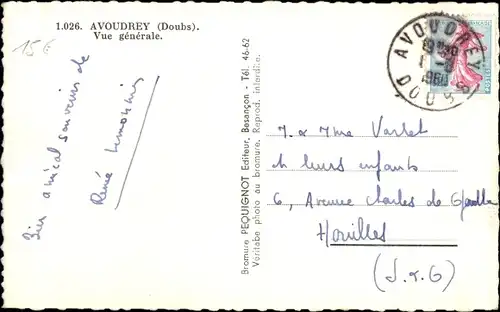 1.026. AVOUDREY (Doubs).
Vue générale.
15€
Bien amical souvenir de
René
Bromure PEQUIGNOT Editeur, Besançon - Tél. 46-62
Véritable photo au bromure. Reprod. interdite.
AVOUDREY
DOUBS
M & Mme Varlet
& leurs enfants
6, Avenue Charles de Gaulle
Houilles
(S.&O)